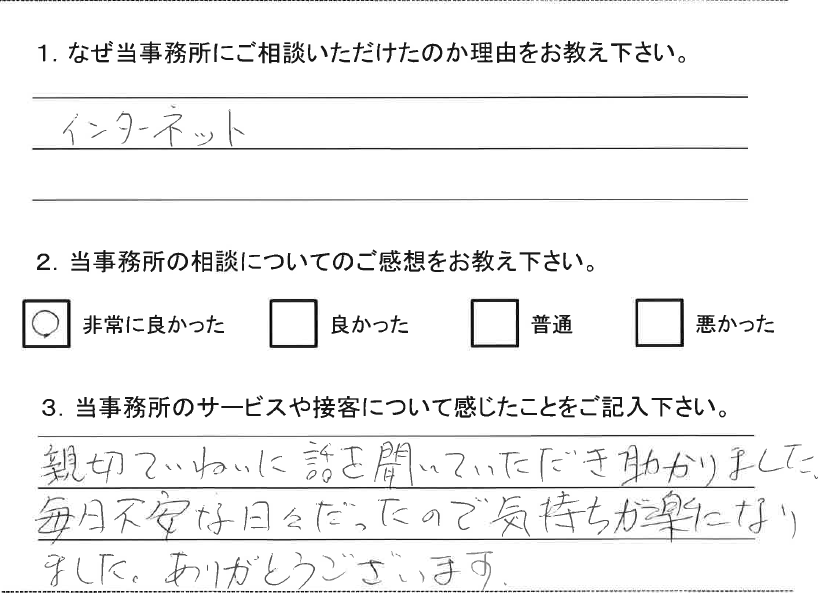 1. なぜ当事務所にご相談いただけたのか理由をお教え下さい。
インターネット
2. 当事務所の相談についてのご感想をお教え下さい。
○ 非常に良かった 良かった 普通 悪かった
3. 当事務所のサービスや接客について感じたことをご記入下さい。
親切ていねいに話を聞いていただき助かりました。
毎日不安な日々だったので気持ちが楽になり
ました。ありがとうございます.